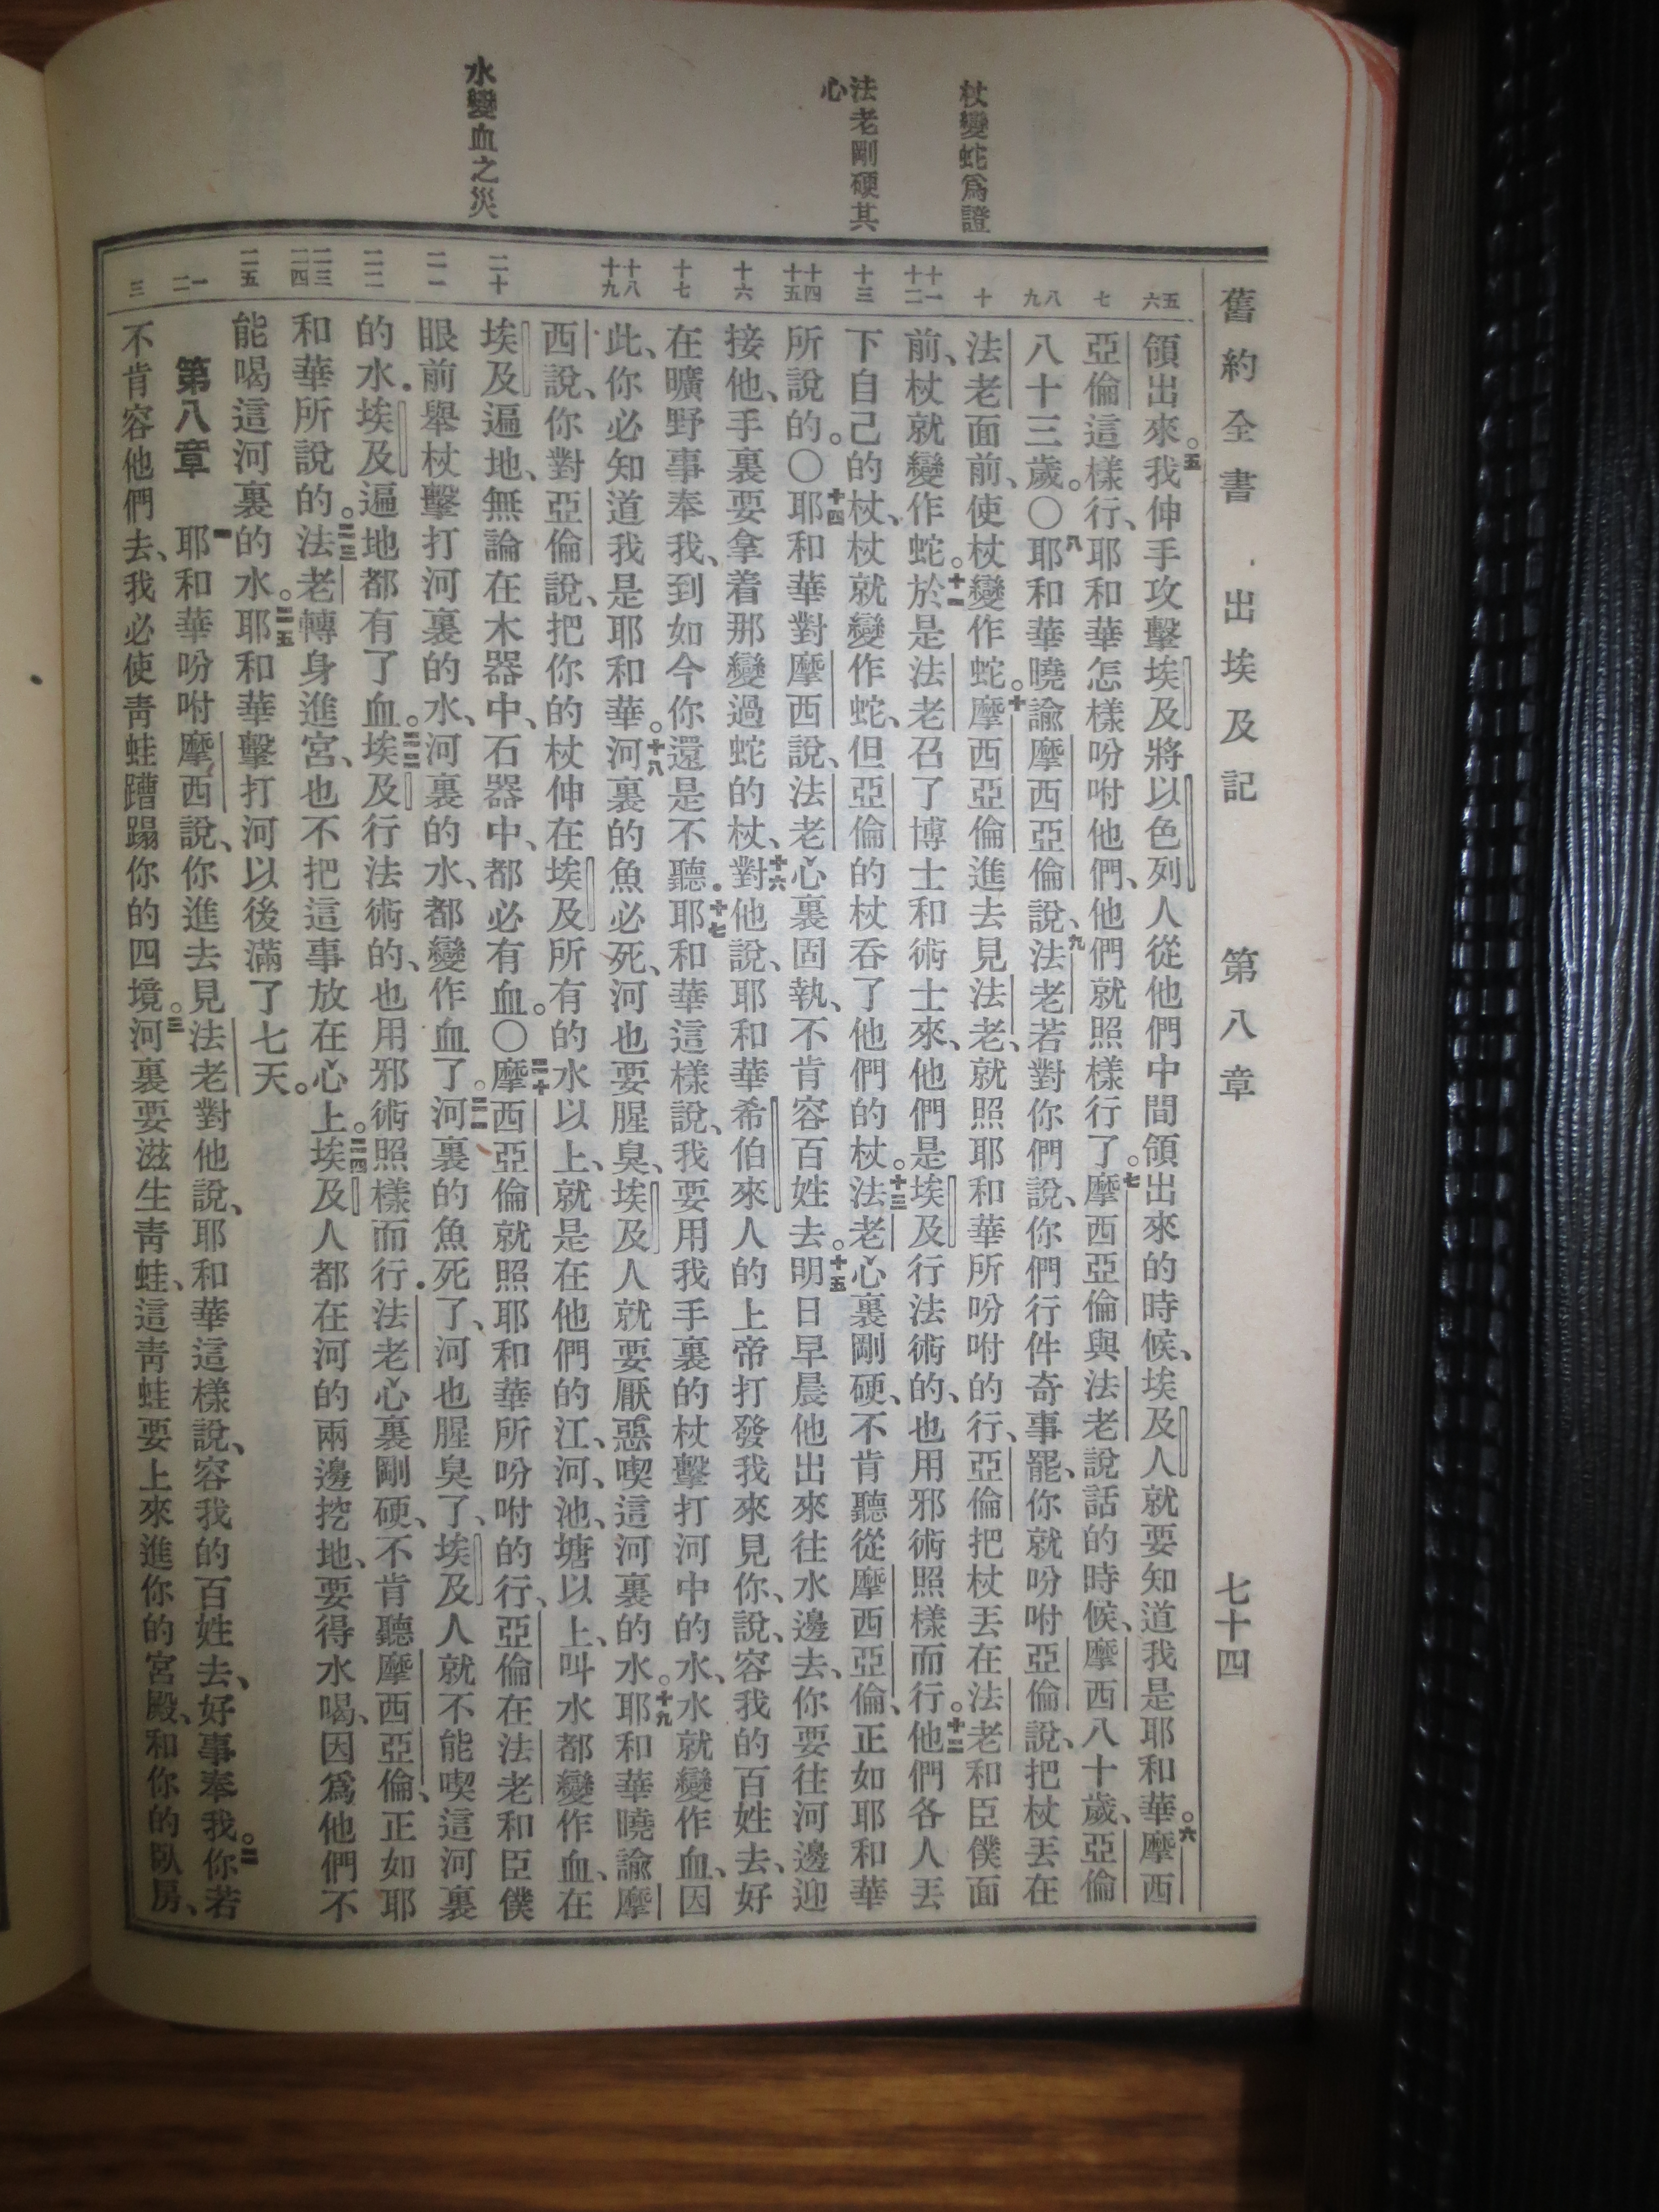 舊約全書 出埃及記 第八章 七十四
杖變蛇爲證
法老剛硬其
心
水變血之災
五
六
七
八
九
十
十一
十二
十三
十四
十五
十六
十七
十八
十九
二十
二一
二二
二三
二四
二五
一
二
三
領出來。五我伸手攻擊埃及將以色列人從他們中間領出來的時候、埃及人就要知道我是耶和華。六摩西
亞倫這樣行、耶和華怎樣吩咐他們、他們就照樣行了。七摩西亞倫與法老說話的時候、摩西八十歲、亞倫
八十三歲。〇八耶和華曉諭摩西亞倫說、九法老若對你們說、你們行件奇事罷、你就吩咐亞倫說、把杖丟在
法老面前、使杖變作蛇。十摩西亞倫進去見法老、就照耶和華所吩咐的行、亞倫把杖丟在法老和臣僕面
前、杖就變作蛇。十一於是法老召了博士和術士來、他們是埃及行法術的、也用邪術照樣而行。十二他們各人丟
下自己的杖、杖就變作蛇、但亞倫的杖吞了他們的杖。十三法老心裏剛硬、不肯聽從摩西亞倫、正如耶和華
所說的。〇十四耶和華對摩西說、法老心裏固執、不肯容百姓去。十五明日早晨他出來往水邊去、你要往河邊迎
接他、手裏要拿着那變過蛇的杖、十六對他說、耶和華希伯來人的上帝打發我來見你、說、容我的百姓去、好
在曠野事奉我、到如今你還是不聽．十七耶和華這樣說、我要用我手裏的杖擊打河中的水、水就變作血、因
此、你必知道我是耶和華。十八河裏的魚必死、河也要腥臭、埃及人就要厭惡喫這河裏的水。十九耶和華曉諭摩
西說、你對亞倫說、把你的杖伸在埃及所有的水以上、就是在他們的江、河、池、塘以上、叫水都變作血、在
埃及遍地、無論在木器中、石器中、都必有血。〇二十摩西亞倫就照耶和華所吩咐的行、亞倫在法老和臣僕
眼前舉杖擊打河裏的水、河裏的水、都變作血了。二一河裏的魚死了、河也腥臭了、埃及人就不能喫這河裏
的水．埃及遍地都有了血。二二埃及行法術的、也用邪術照樣而行．法老心裏剛硬、不肯聽摩西亞倫、正如耶
和華所說的。二三法老轉身進宮、也不把這事放在心上。二四埃及人都在河的兩邊挖地、要得水喝、因爲他們不
能喝這河裏的水。二五耶和華擊打河以後滿了七天。
第八章 一耶和華吩咐摩西說、你進去見法老對他說、耶和華這樣說、容我的百姓去、好事奉我。二你若
不肯容他們去、我必使青蛙蹧蹋你的四境。三河裏要滋生青蛙、這青蛙要上來進你的宮殿、和你的臥房、